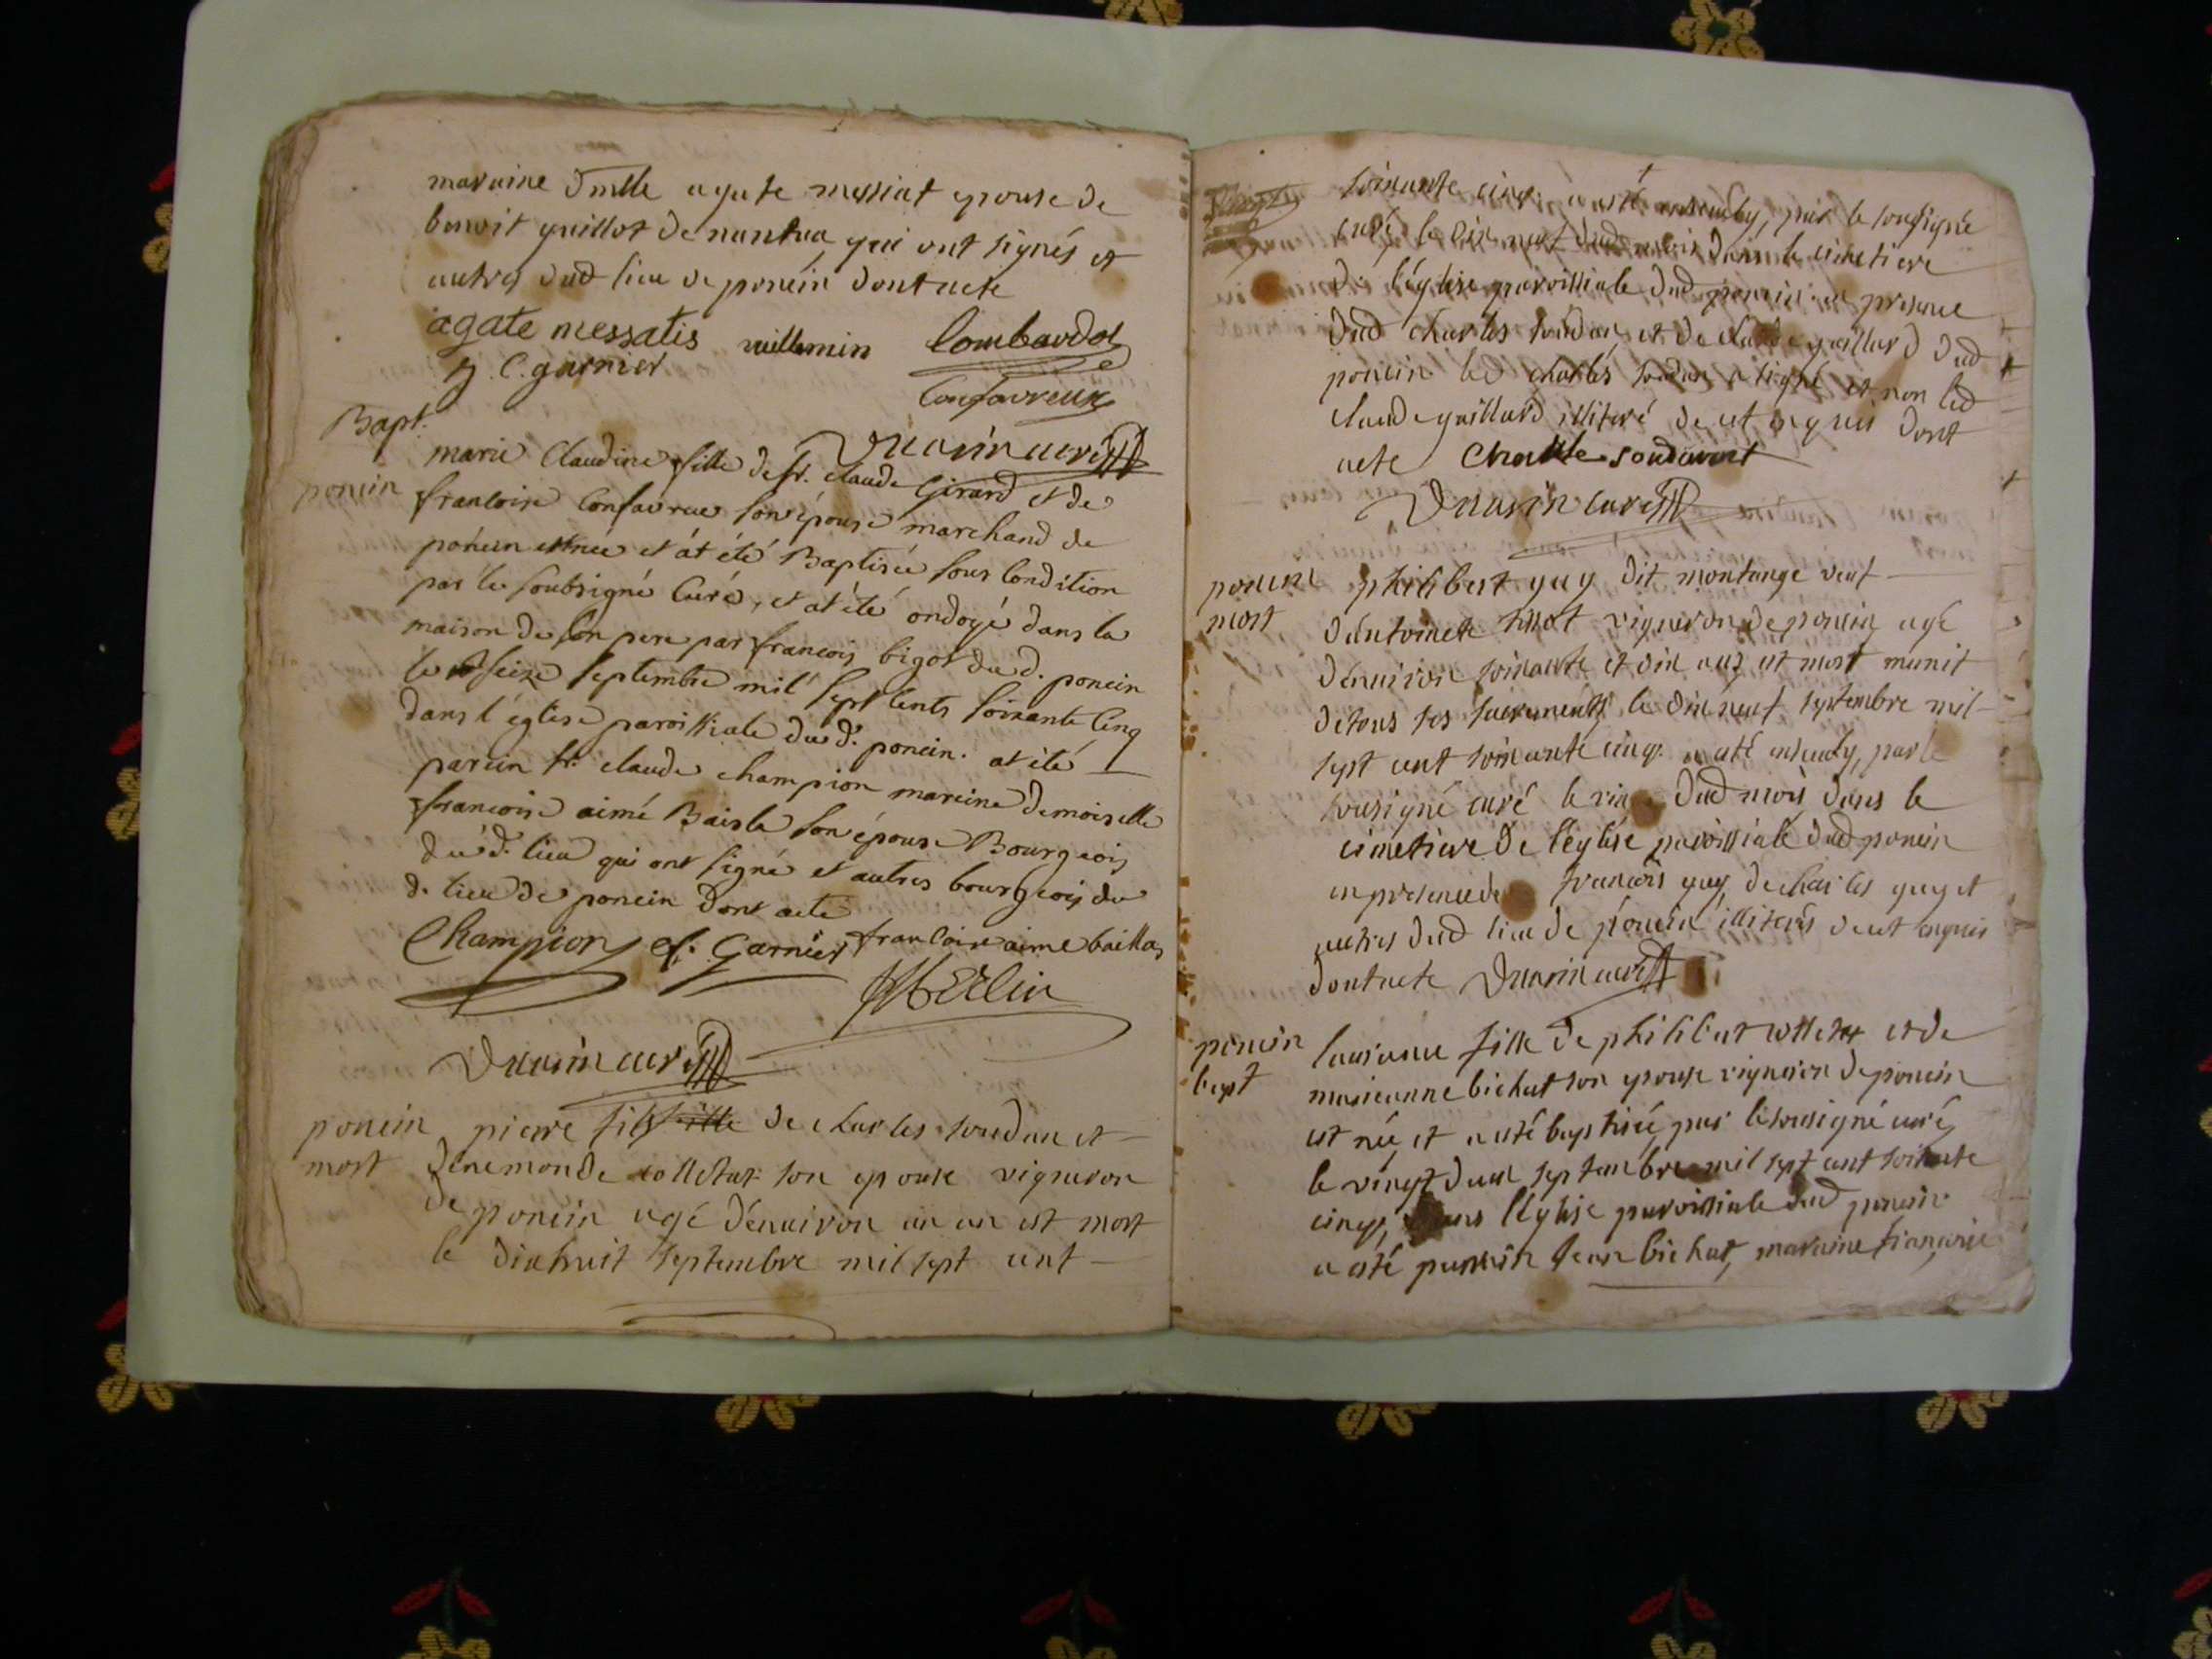 maraine dmlle agate messiat epouse de
benoit guillot de nantua, qui ont signés et
autres dud lieu de poncin dont acte
agate messatis vuillemin Lombardot
J. C. garnier
Confavreux
curé
Bapt.
poncin
marie Claudine fille de sr. claude Girard et de
francoise Confavreux son épouse marchand de
poncin est née et at été Baptisée sous Condition
par le soubsigné Curé, et at été ondoyé dans la
maison de son pere par francois bigot du d. poncin
le seize septembre mil sept Cents soixante Cinq
dans l'église paroissiale du d. poncin. at été
parein sr. claude champion mareine demoiselle
francoise aimé Baisla son épouse Bourgeois
du d. lieu qui ont signé et autres bourgeois du
d. lieu de poncin dont acte
Champion C. Garnier francoise aime baillas
curé
poncin
mort
pierre fils fille de charles soudan et
denemonde colletat son epouse vigneron
de poncin agé dénuiron un an est mort
le dixhuit septembre mil sept cent
soixante cinq a esté ensevely, par le sousigné
curé le dix neuf dud mois dans le cimetiere
de l'église paroissiale dud poncin en presence
dud charles soudan et de claude gaillard dud
poncin led charles soudan a signé et non led
claude gaillard illiteré de ce enquis dont
acte Charle soudant
curé
poncin
mort
philibert guy dit montange veuf
dantoinete vigneron de poncin agé
dénuiron soixante et dix ans est mort munit
de tous ses sacrements le dix neuf septembre mil
sept cent soixante cinq. a esté ensevely, par le
sousigné curé le dud mois dans le
cimetiere de l'église paroissiale dud poncin
en presence de francois guy, de charles guy et
autres dud lieu de poncin illiterés de ce enquis
dont acte curé
poncin
bapt
fille de philibert et de
marieanne bichat son epouse vigneron de poncin
est née, et a esté baptisée, par le sousigné curé,
le vingt deux septembre mil sept cent soixante
cinq, dans l'église paroissiale dud poncin
a esté parrein Jean bichat, maraine francoise